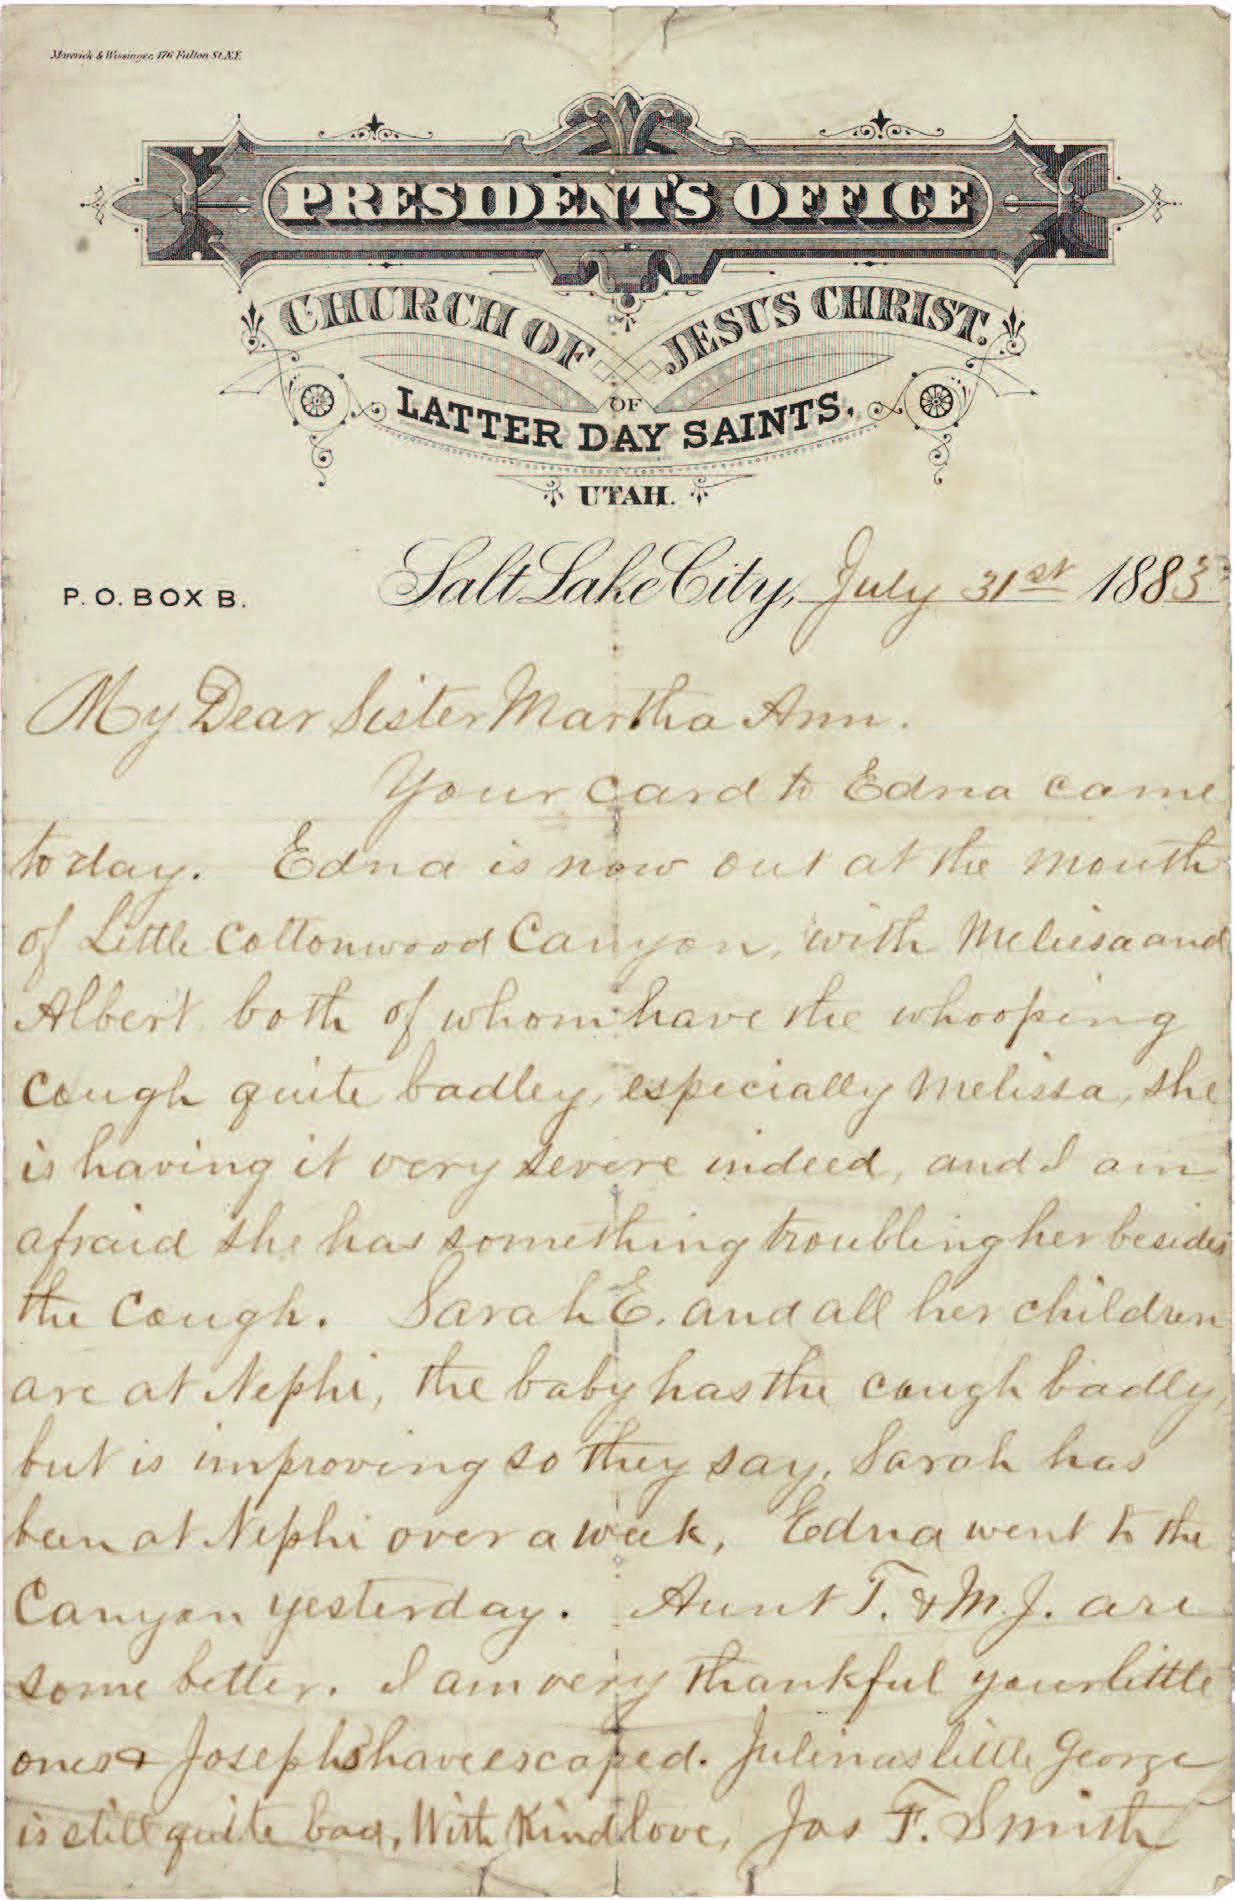 Maverick & Wissinger, 176 Fulton St. N.Y.
PRESIDENT'S OFFICE
CHURCH OF JESUS CHRIST.
OF
LATTER DAY SAINTS.
UTAH.
P. O. BOX B.
Salt Lake City, July 31st 1883
My Dear Sister Martha Ann.
Your card to Edna came
to day. Edna is now out at the mouth
of Little Cottonwood Canyon, with Meliesa and
Albert both of whom have the whooping
cough quite badley, especially Melissa, she
is having it very severe indeed, and I am
afraid she has something troubling her besides
the cough. Sarah E. and all her children
are at Nephi, the baby has the cough badly,
but is improving so they say, Sarah has
been at Nephi over a week, Edna went to the
Canyon yesterday. Aunt T. & M. J. are
some better. I am very thankful your little
ones & Josephs have escaped. Julinas little George
is still quite bad, With Kind love, Jos F. Smith